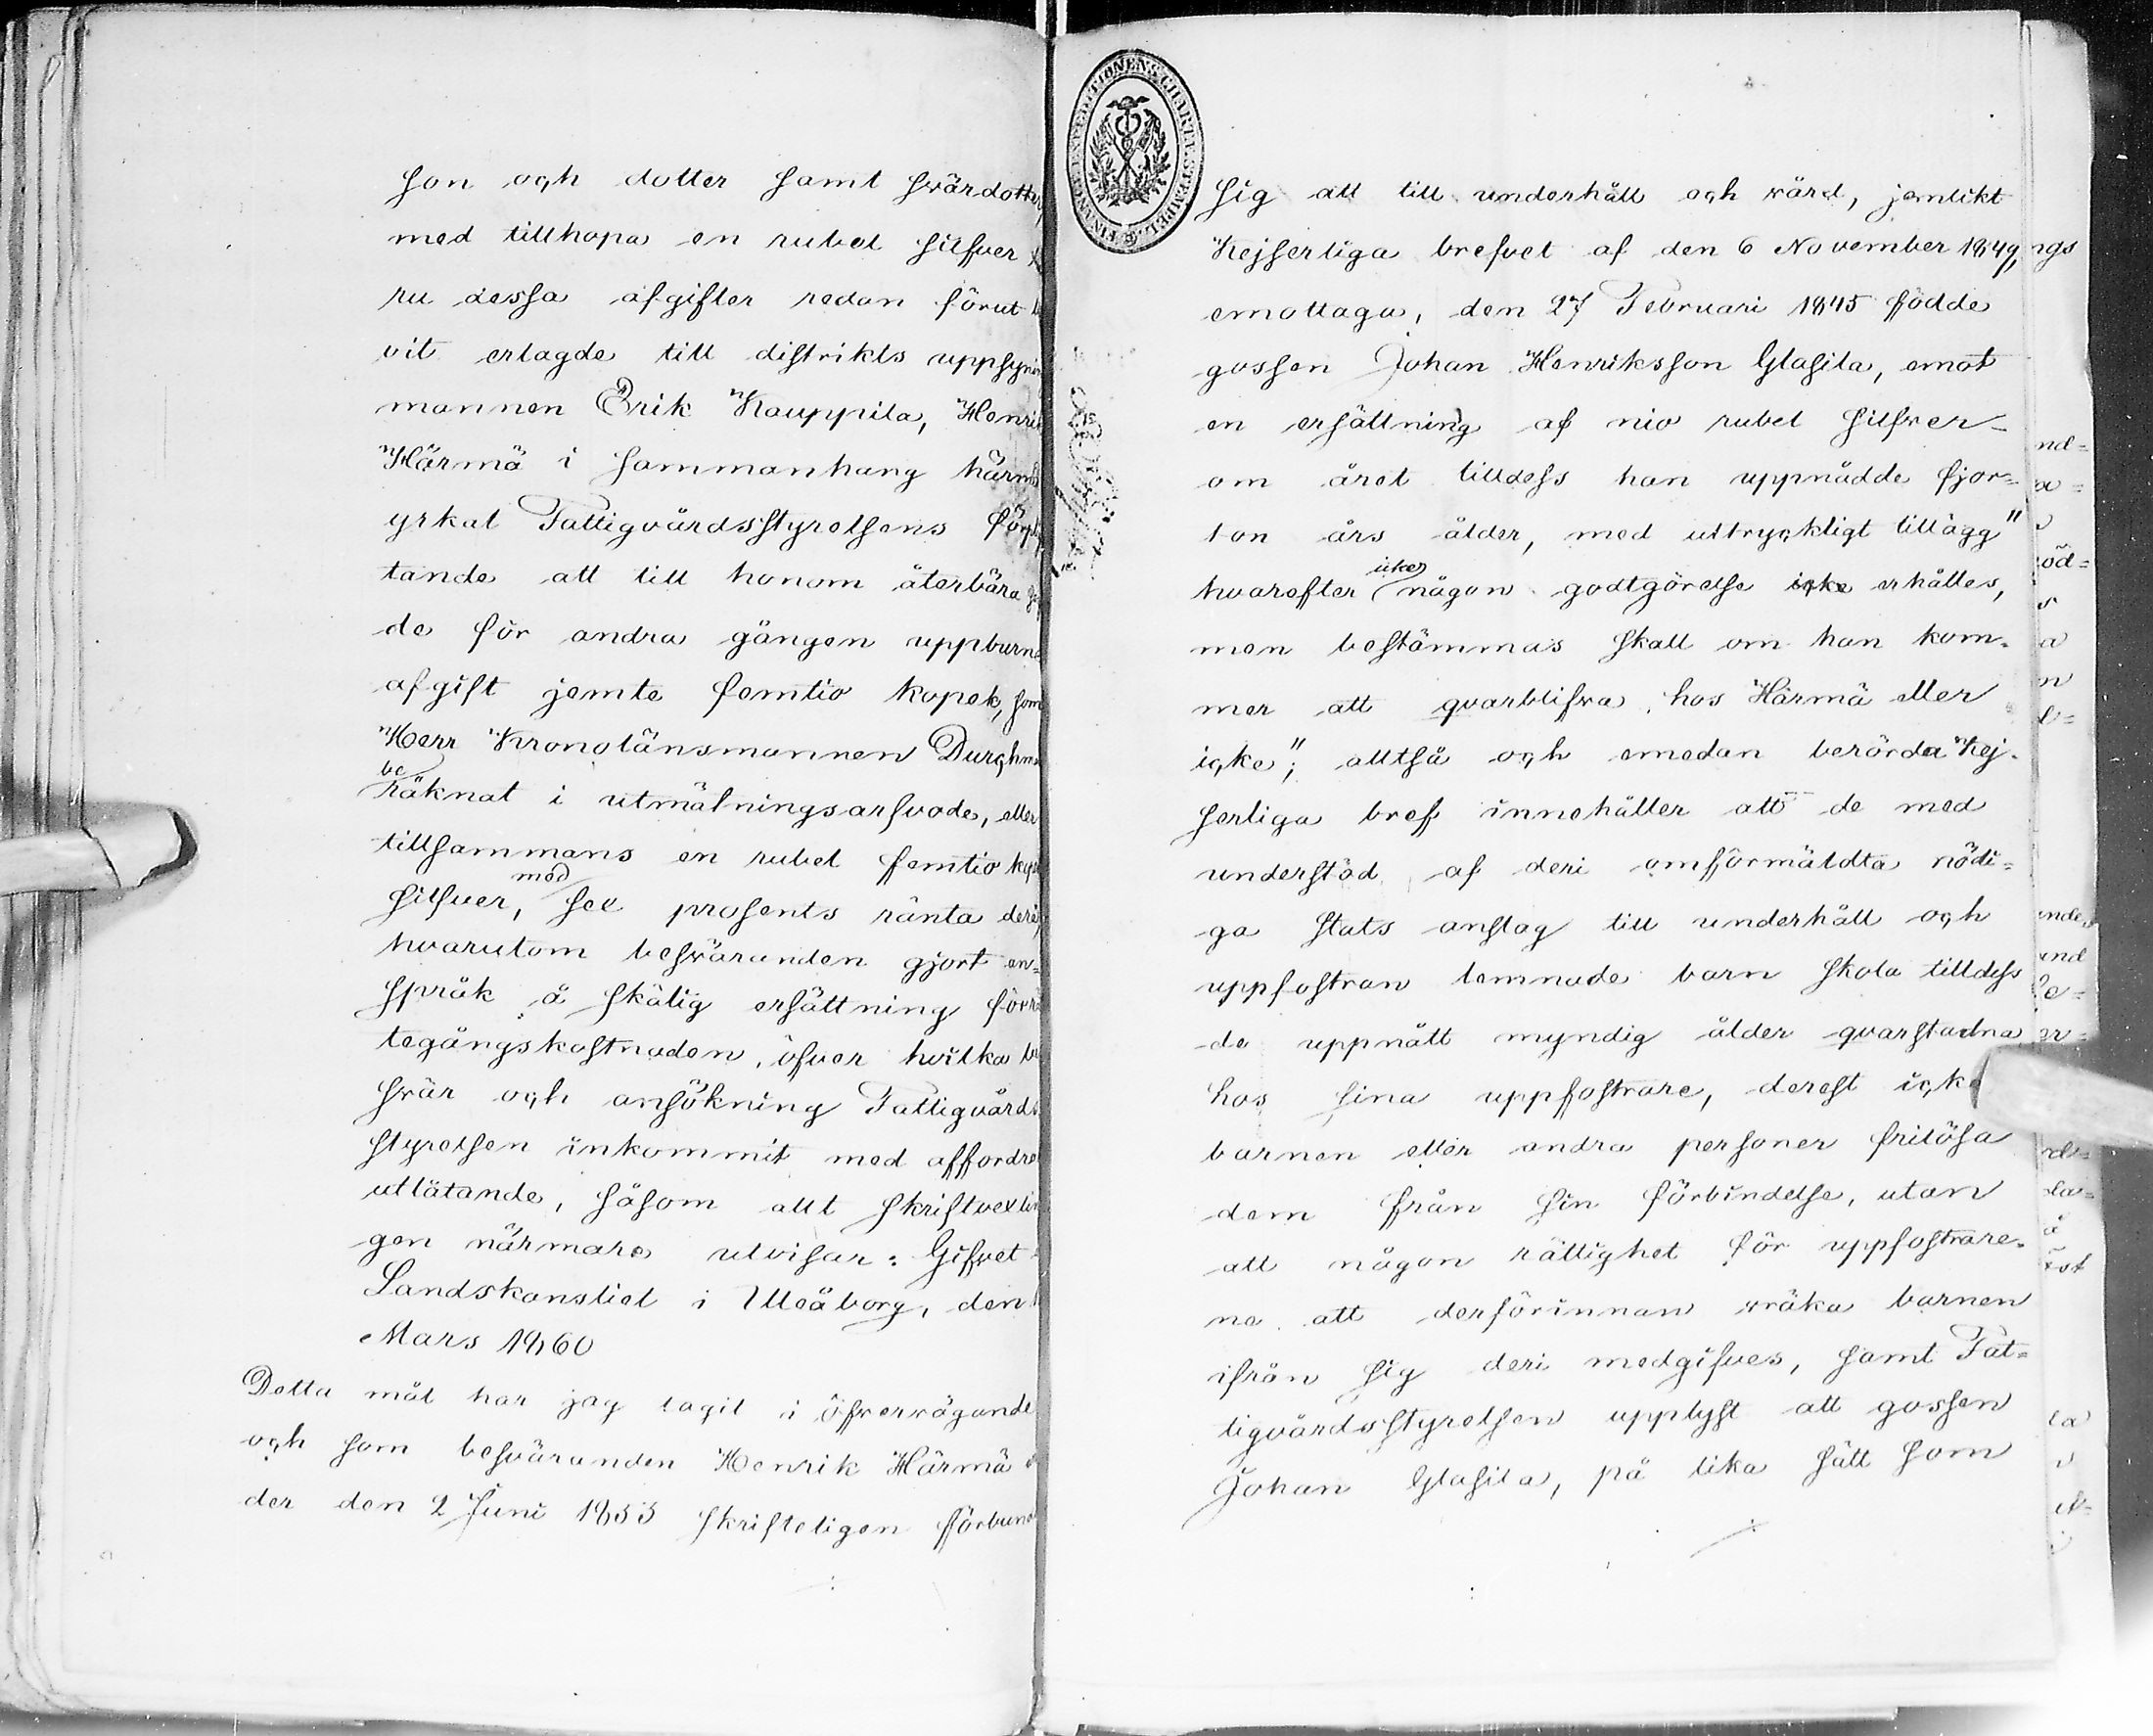 son och dotter samt svärdotter,
med tillhopa en rubel silfver
ru dessa afgifter redan förut
vit erlagde till distrikts uppsynings
mannen Erik Kauppila, Henrik
Härmä i sammanhang härmed
yrkat Fattigvårdsstyrelsens förplig
tande att till honom återbära
de för andra gången uppburne
afgift jemte femtio kopek, som
Herr Kronolänsmannen Durchman
beräknat i utmätningsarfvode, eller
tillsammans en rubel femtio kopek
silfver, med sex prosents ränta derå,
hvarutom besväranden gjort an=
språk å skälig ersättning för rät
tegångskostnaden, öfver hvilka be
svär och ansökning Fattigvårds
styrelsen inkommit med affordradt
utlåtande, såsom allt skriftvexlin
gen närmare utvisar: Gifvet
Landskansliet i Uleåborg, den
Mars 1860
Detta mål har jag tagit i öfvervägande
och som besväranden Henrik Härmä
der den 2 Juni 1853 skrifteligen förbundit
FINANCE EXPEDITIONENS CHARTÆ STEMPEL
sig att till underhåll och vård, jemlikt
Kejserliga brefvet af den 6 November 1849,
emottaga, den 27 Februari 1845 födde
gossen Johan Henriksson Glasila, emot
en ersättning af nio rubel silfver
om året tilldess han uppnådde fjor=
ton års ålder, med uttryckligt tillägg"
hvarefter icke någon godtgörelse icke erhålles,
men bestämmas skall om han kom=
mer att qvarblifva hos Härmä eller
icke"; alltså och emedan berörda Kej=
serliga bref innehåller att de med
understöd af deri omförmäldta nödi=
ga Stats anslag till underhåll och
uppfostran lemnade barn skola tilldess
de uppnått myndig ålder qvarstadna
hos sina uppfostrare, derest icke
barnen eller andra personer fritösa
dem från sin förbindelse, utan
att någon rättighet för uppfostrare=
ne att derförinnan vräka barnen
ifrån sig deri medgifves, samt Fat=
tigvårdsstyrelsen upplyst att gossen
Johan Glasila, på lika sätt som